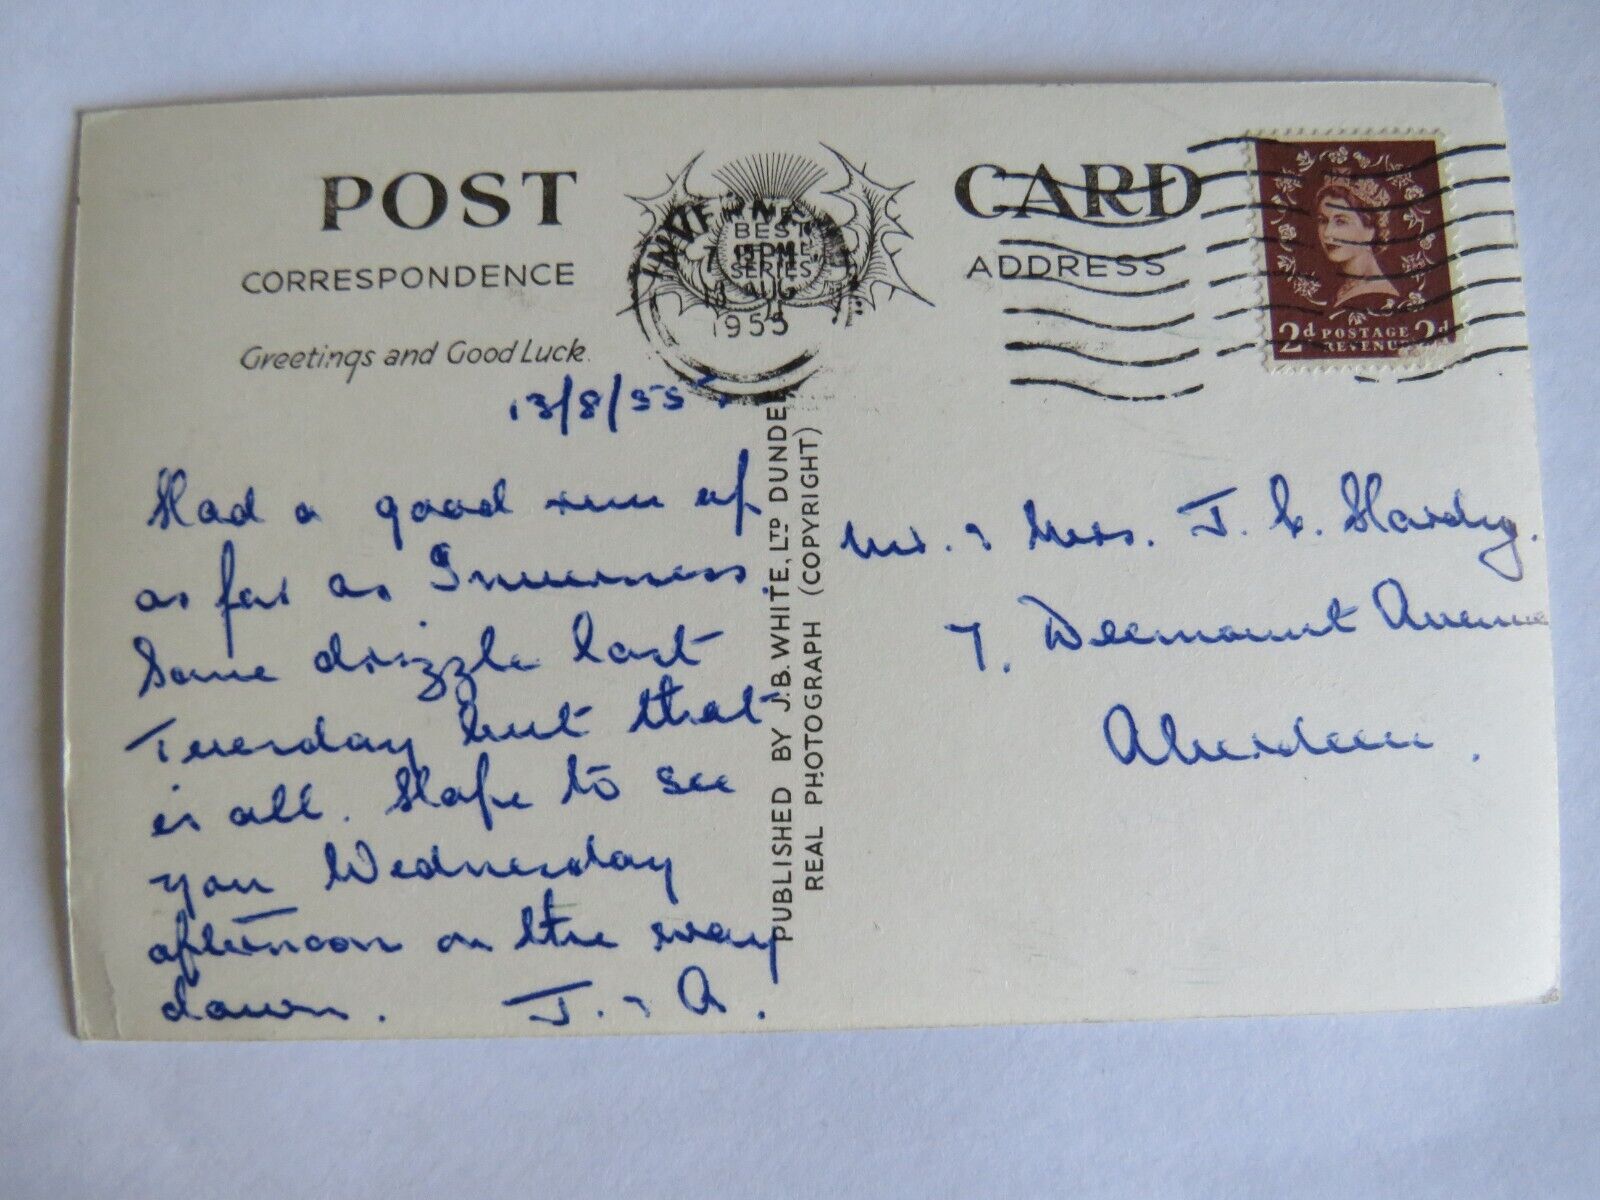 POST CARD
CORRESPONDENCE
ADDRESS
Greetings and Good Luck.
BEST
SERIES
INVERNESS
7 15 PM
13 AUG
1955
2d POSTAGE 2d
REVENUE
13/8/55.
Had a good run up
as far as Inverness.
Some drizzle last
Tuesday but that
is all. Hope to see
you Wednesday
afternoon on the way
down. J. & A.
PUBLISHED BY J.B. WHITE, LTD DUNDEE
REAL PHOTOGRAPH (COPYRIGHT)
Mr. & Mrs. J. C. Hardy.
7. Deemount Avenue
Aberdeen.